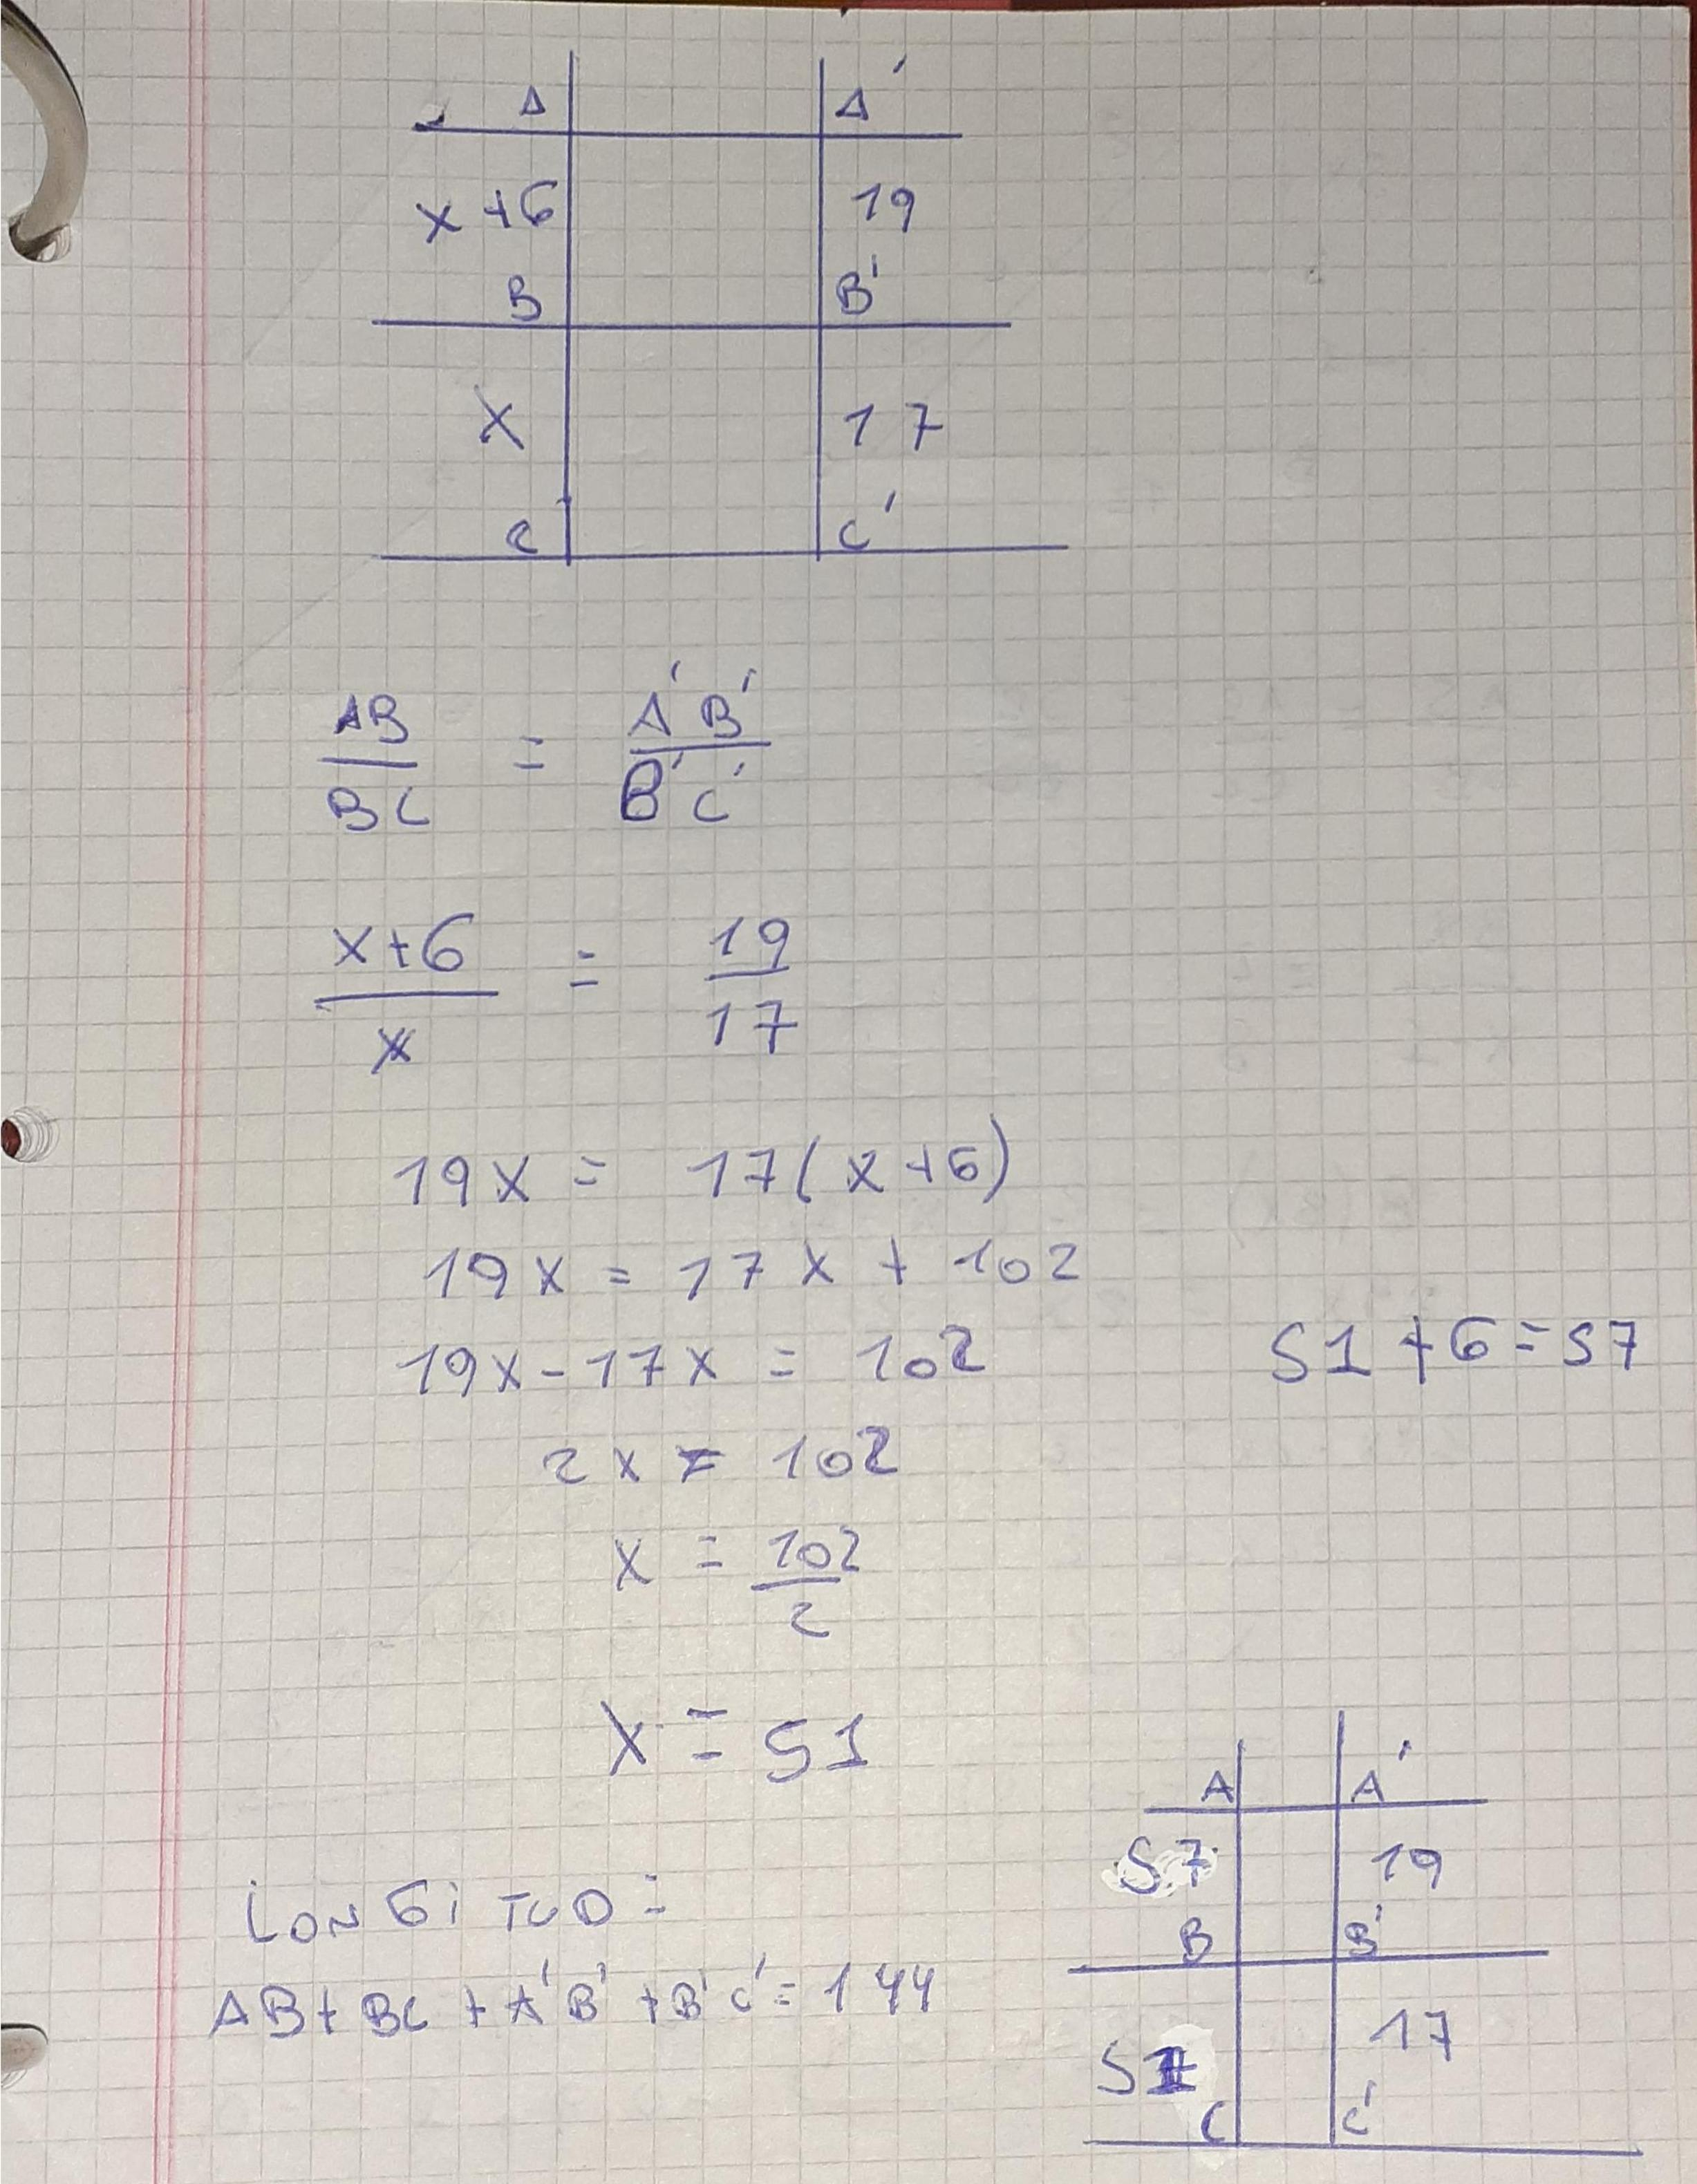 A A'
x+6 19
B B'
x 17
C C'
AB/BC = A'B'/B'C'
x+6/x = 19/17
19x = 17(x+6)
19x = 17x + 102
19x-17x = 102
51+6=57
2x = 102
x = 102/2
x = 51
A A'
57 19
B B'
51 17
C C'
LONGiTUD=
AB+BC+A'B'+B'C'=144